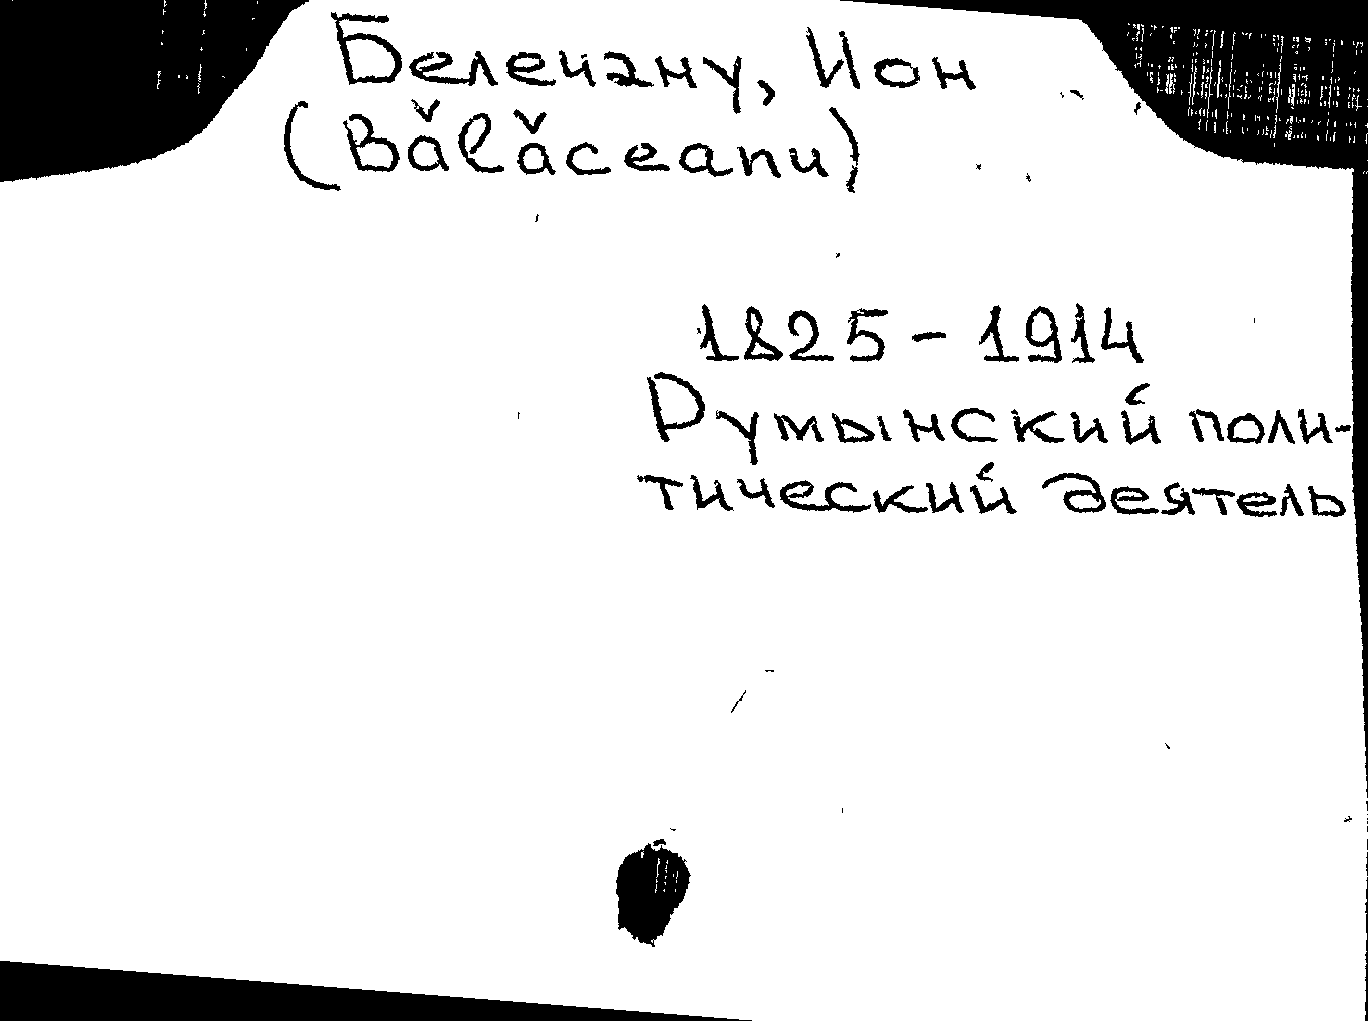 Белечану, Ион
(Bălăceanu)
1825 - 1914
Румынский поли-
тический деятель